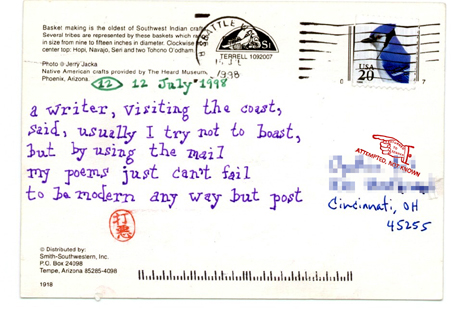 Basket making is the oldest of Southwest Indian crafts.
Several tribes are represented by these baskets which
in size from nine to fifteen inches in diameter. Clockwise
center top: Hopi, Navajo, Seri and two Tohono O'odham.
Photo © Jerry Jacka
Native American crafts provided by The Heard Museum,
Phoenix, Arizona.
SEATTLE
TERRELL 1092007
1998
USA
20
12 12 July 1998
a writer, visiting the coast,
said, usually I try not to boast,
but by using the mail
my poems just can't fail
to be modern any way but post
ATTEMPTED, NOT KNOWN
Cincinnati, OH
45255
© Distributed by:
Smith-Southwestern, Inc.
P.O. Box 24098
Tempe, Arizona 85285-4098
1918